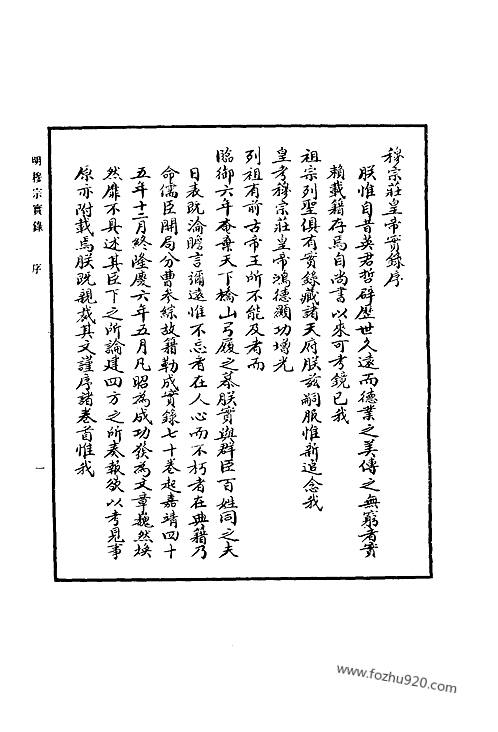 穆宗莊皇帝實錄序
朕惟自昔英君哲辟歷世久遠而德業之美傳之無窮者實
賴載籍存焉自尚書以來可考鏡已我
祖宗列聖俱有實錄藏諸天府朕玆嗣服惟新追念我
皇考穆宗莊皇帝鴻德顯功增光
列祖有前古帝王所不能及者而
臨御六年奄棄天下橋山弓履之慕朕實與群臣百姓同之夫
日表既淪瞻言彌遠惟不忘者在人心而不朽者在典籍乃
命儒臣開局分曹參綜故籍勒成實錄七十卷起嘉靖四十
五年十二月終隆慶六年五月凡昭為成功發為文章巍然煥
然靡不具述其臣下之所論建四方之所奏報欲以考見事
原亦附載焉朕既親裁其文謹序諸卷首惟我
明穆宗實錄 序 一
www.fozhu920.com